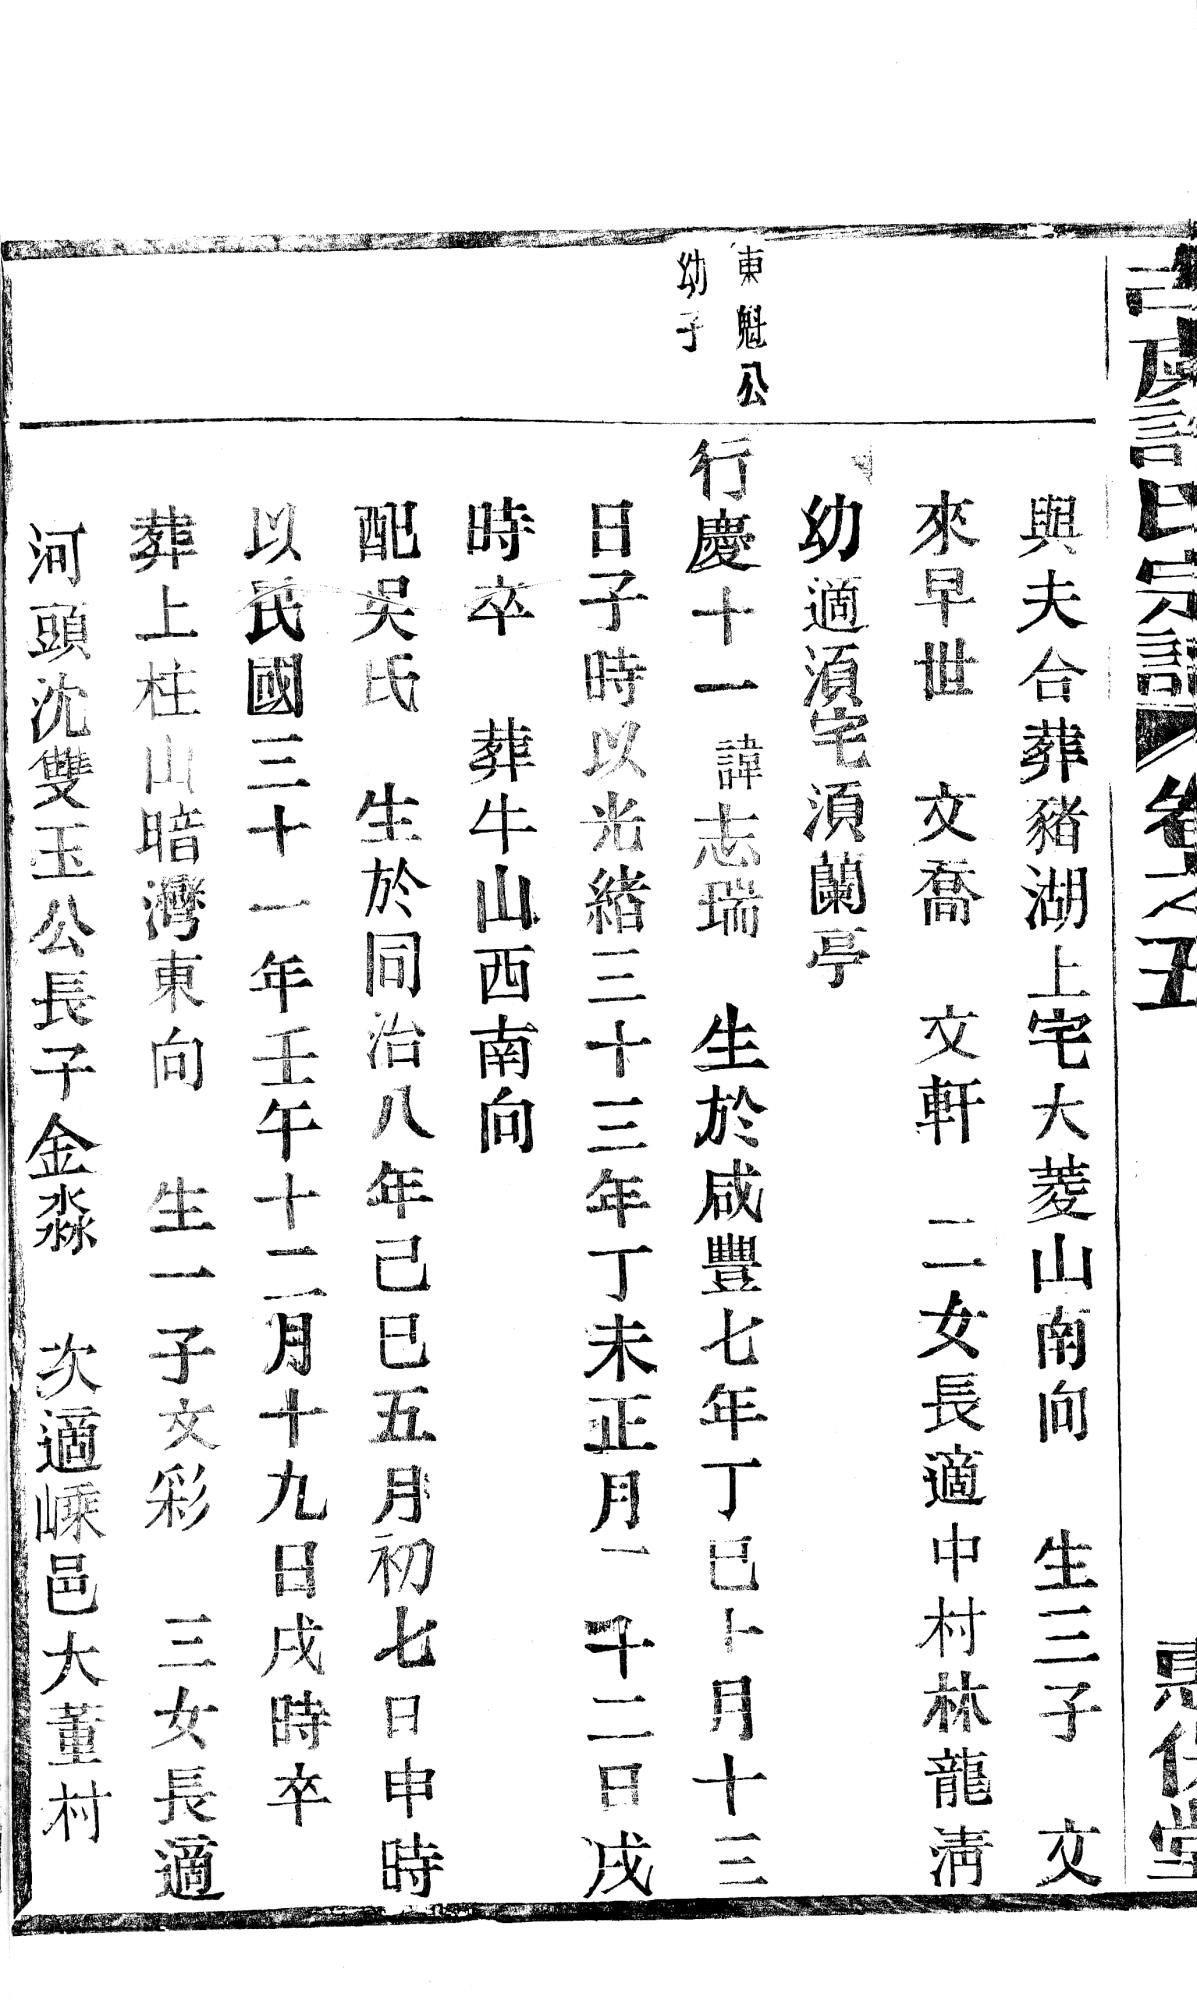 古虞許氏宗譜 卷之五 惠保堂
與夫合葬豬湖上宅大菱山南向 生三子 文
來早世 文喬 文軒 二女長適中村林龍淸
幼適湏宅湏蘭亭
東魁公
幼子
行慶十一諱志瑞 生於咸豐七年丁巳十月十三
日子時以光緒三十三年丁未正月 十二日戌
時卒 葬牛山西南向
配吳氏 生於同治八年己巳五月初七日申時
以民國三十一年壬午十二月十九日戌時卒
葬上柱山暗灣東向 生一子文彩 三女長適
河頭沈雙玉公長子金淼 次適嵊邑大董村